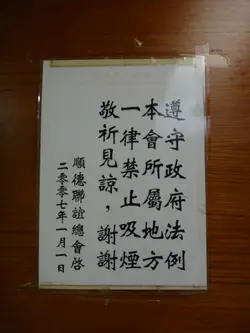 遵守政府法例
本會所屬地方
一律禁止吸煙
敬祈見諒，謝謝
順德聯誼總會啓
二零零七年一月一日